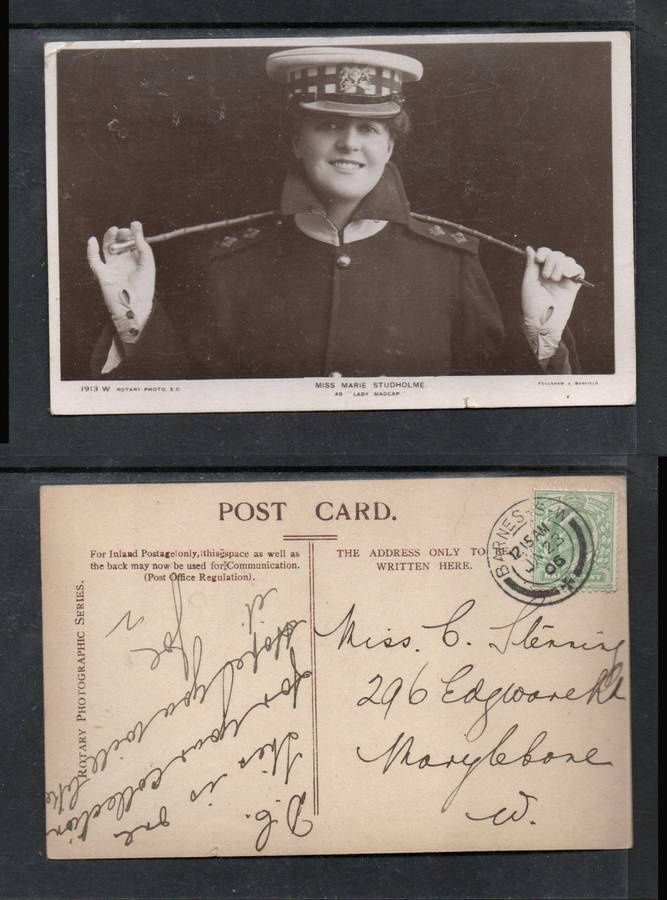 1913 W ROTARY PHOTO. E.C.
MISS MARIE STUDHOLME.
AS "LADY MADCAP"
FOULSHAM & BANFIELD
POST CARD.
For Inland Postage only, this space as well as
the back may now be used for Communication.
(Post Office Regulation).
THE ADDRESS ONLY TO BE
WRITTEN HERE.
ROTARY PHOTOGRAPHIC SERIES.
BARNES S.W
12.15 AM
23
05
HALFPENNY
Miss. C. Stenning
296 Edgware Rd
Marylebone
W.
D.C.
this is one
for your collection
Hope you will like
it.
Joe